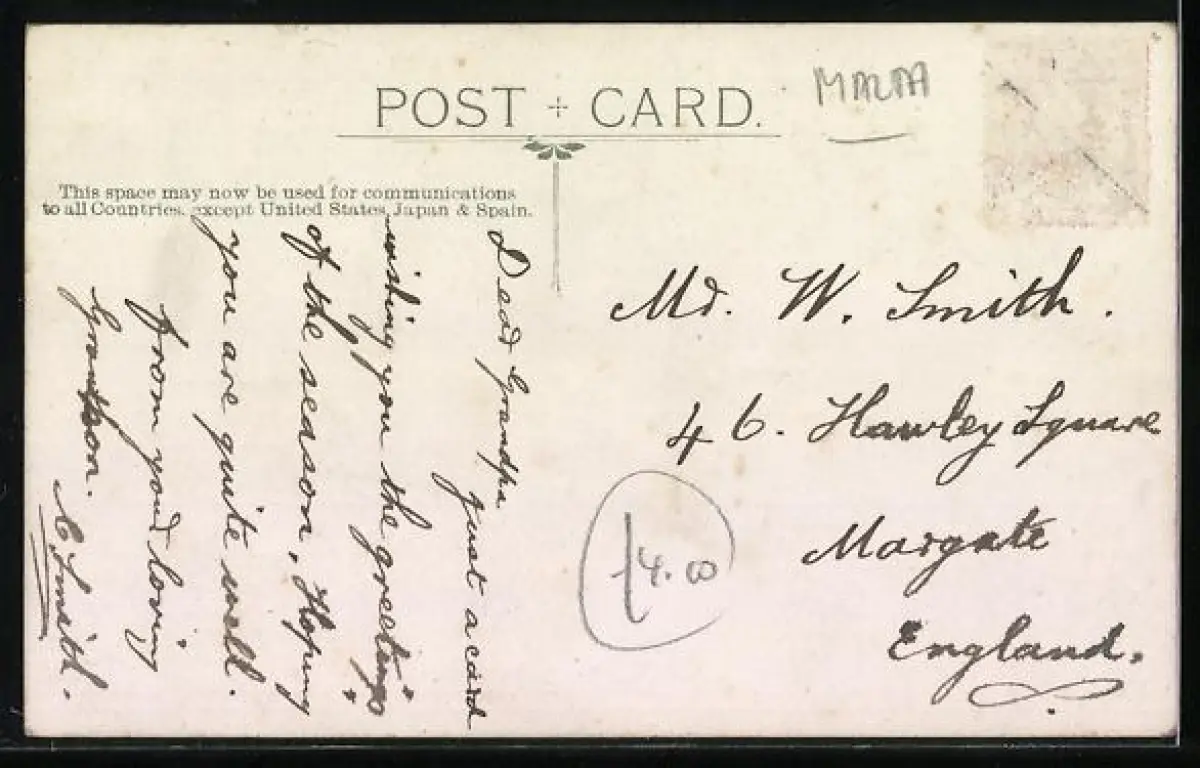 POST CARD.
MALTA
This space may now be used for communications
to all Countries, except United States, Japan & Spain.
Dear Grandpa
just a card
wishing you the greetings
of the season, Hoping
you are quite well.
from your loving
Grandson.
C. Smith.
Mr. W. Smith.
46. Hawley Square
Margate
England.
4.00